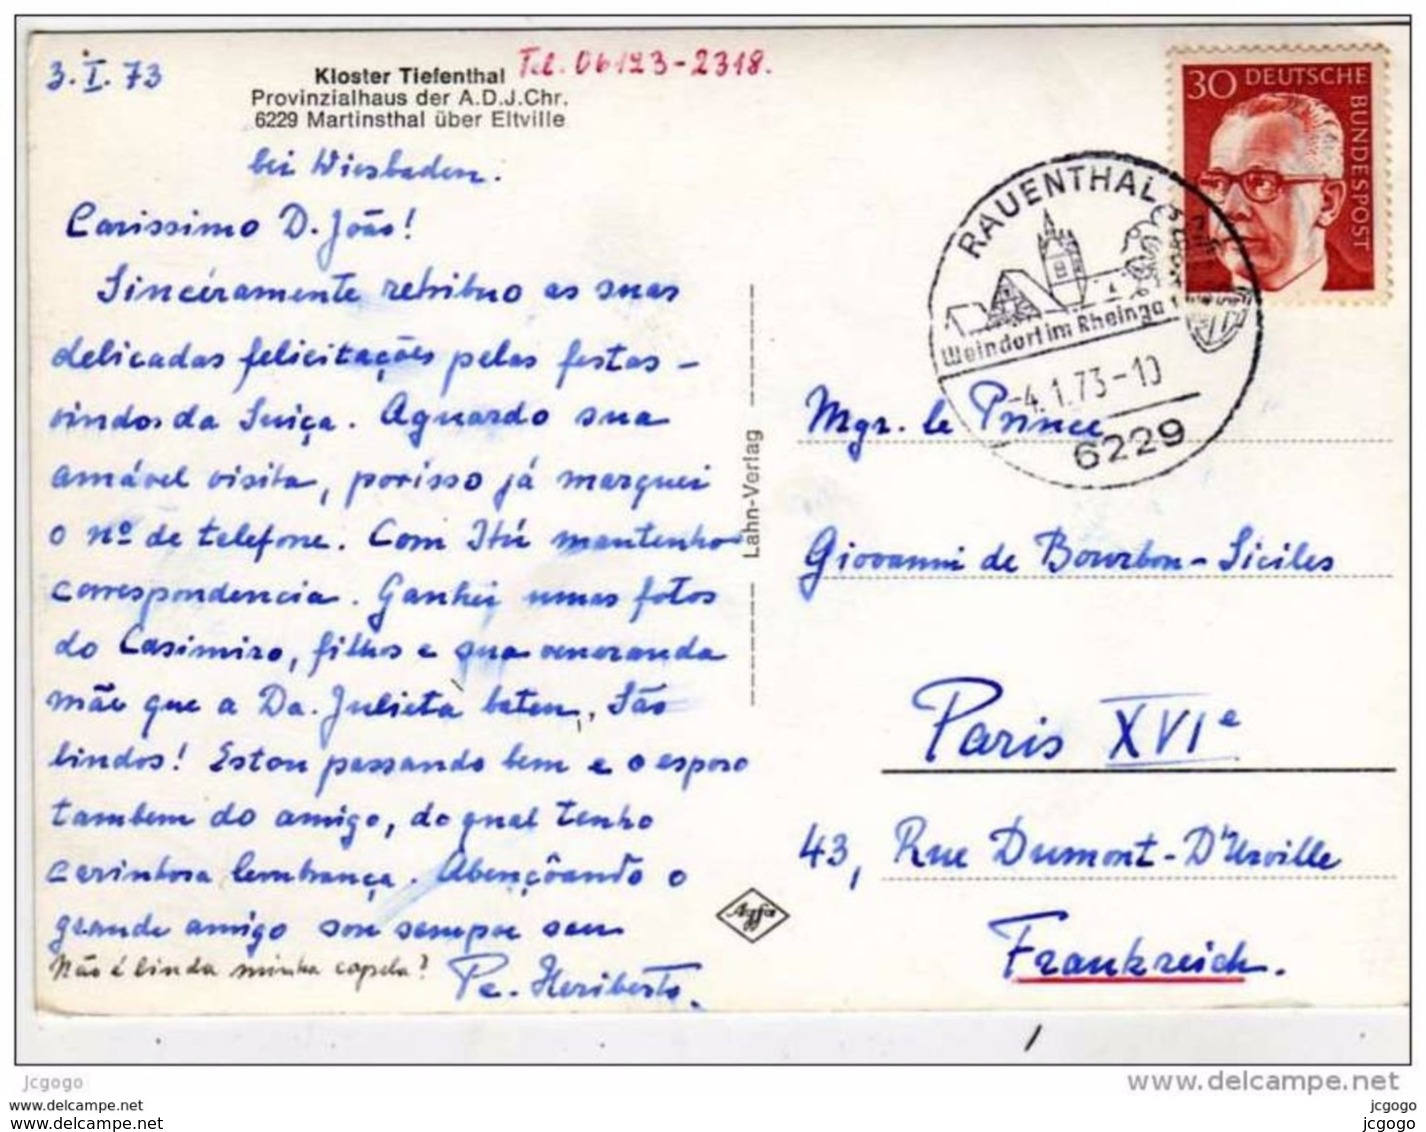 3.I.73
Kloster Tiefenthal Tel. 06123-2318.
Provinzialhaus der A.D.J.Chr.
6229 Martinsthal über Eltville
bei Wiesbaden.
Carissimo D. João!
Sincéramente retribuo as suas
delicadas felicitações pelas festas –
vindos da Suiça. Aguardo sua
amável visita, porisso já marquei
o nº de telefone. Com Itú mantenho
correspondencia. Ganhei umas fotos
do Casimiro, filhos e sua veneranda
mãe que a Da. Julieta bateu, São
lindos! Estou passando bem e o esposo
tambem do amigo, do qual tenho
carinhosa lembrança. Abençôando o
grande amigo sou sempre seu
Não é linda minha capela? Pe. Heriberto.
Lahn-Verlag
Agfa
30 DEUTSCHE BUNDESPOST
RAUENTHAL
Weindorf im Rheinga
-4.1.73-10
6229
Mgr. le Prince
Giovanni de Bourbon-Siciles
Paris XVIe
43, Rue Dumont-D'Urville
Frankreich.
jcgogo
www.delcampe.com
jcgogo
www.delcampe.net
jcgogo
www.delcampe.com
jcgogo